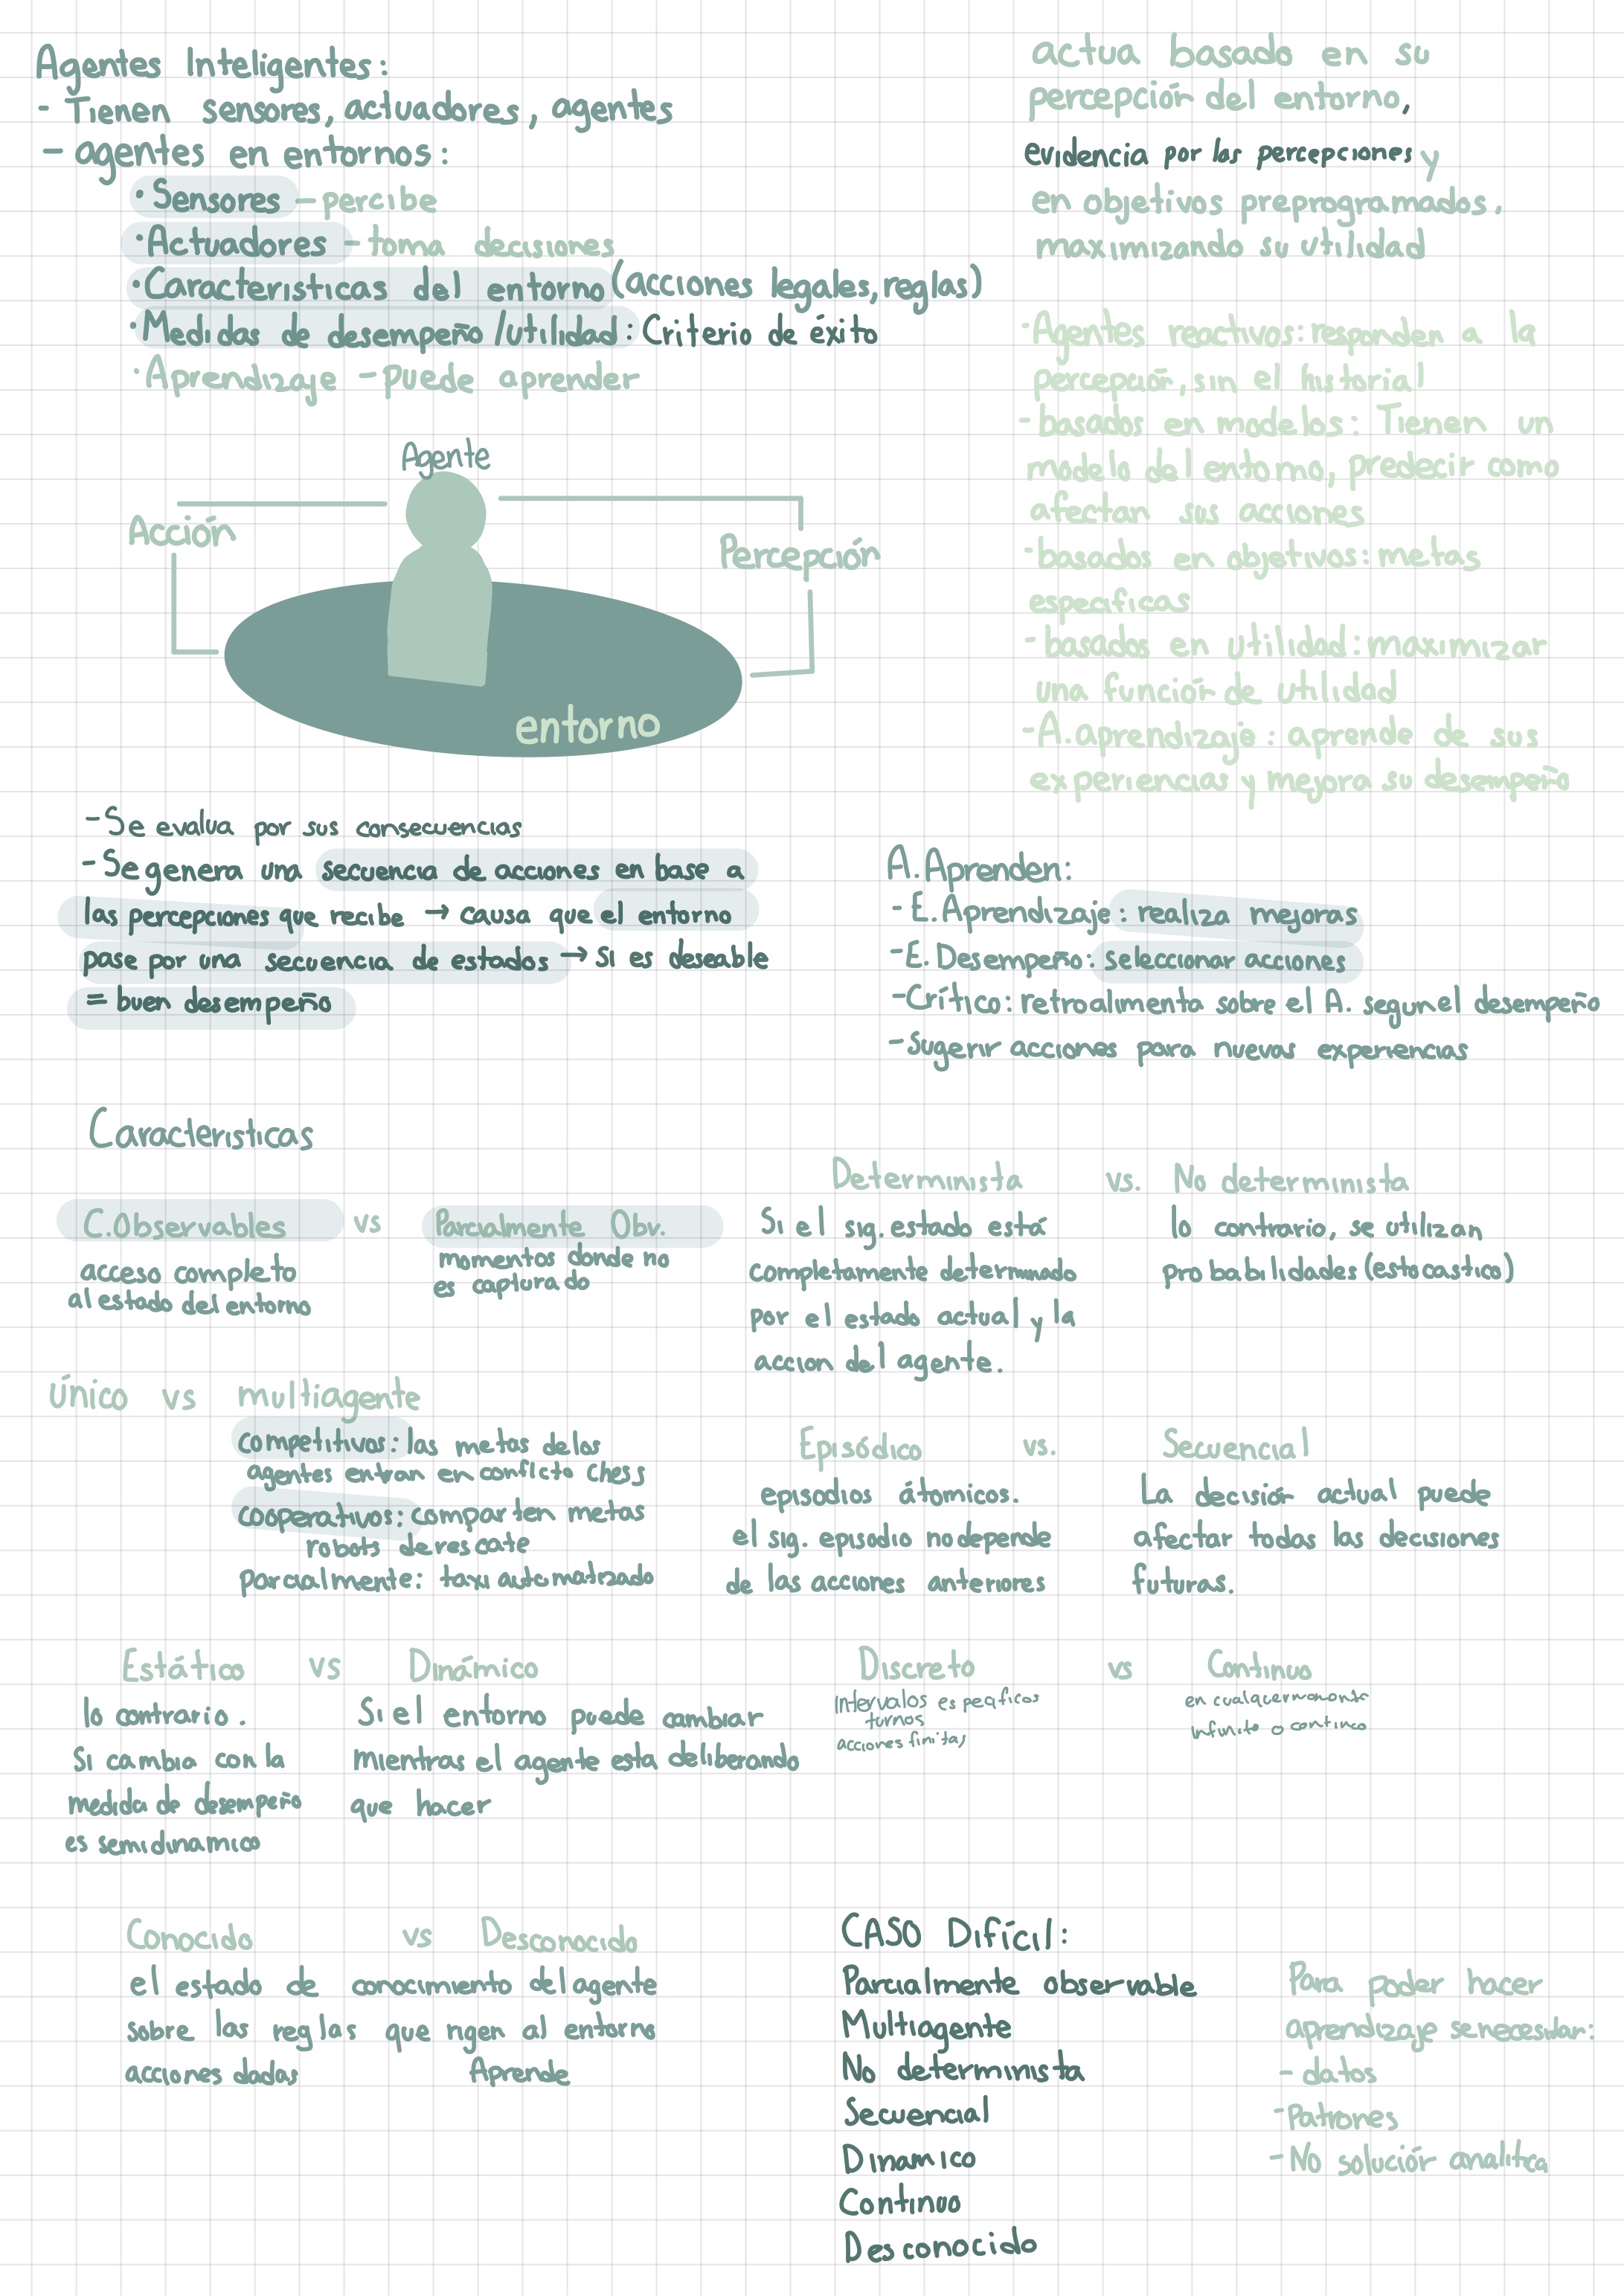 Agentes Inteligentes:
- Tienen sensores, actuadores, agentes
- agentes en entornos:
• Sensores - percibe
• Actuadores - toma decisiones
• Caracteristicas del entorno (acciones legales, reglas)
• Medidas de desempeño /utilidad: Criterio de éxito
• Aprendizaje - puede aprender
Agente
Acción
Percepción
entorno
actua basado en su
percepción del entorno,
evidencia por las percepciones y
en objetivos preprogramados.
maximizando su utilidad
- Agentes reactivos: responden a la
percepción, sin el historial
- basados en modelos: Tienen un
modelo del entorno, predecir como
afectan sus acciones
- basados en objetivos: metas
especificas
- basados en utilidad: maximizar
una función de utilidad
- A. aprendizaje: aprende de sus
experiencias y mejora su desempeño
- Se evalua por sus consecuencias
- Se genera una secuencia de acciones en base a
las percepciones que recibe → causa que el entorno
pase por una secuencia de estados → Si es deseable
= buen desempeño
A. Aprenden:
- E. Aprendizaje: realiza mejoras
- E. Desempeño: seleccionar acciones
- Crítico: retroalimenta sobre el A. segun el desempeño
- Sugerir acciones para nuevas experiencias
Caracteristicas
C. Observables vs Parcialmente Obv.
acceso completo
al estado del entorno
momentos donde no
es capturado
Determinista vs. No determinista
Si el sig. estado está
completamente determinado
por el estado actual y la
accion del agente.
lo contrario, se utilizan
probabilidades (estocastico)
único vs multiagente
competitivos: las metas de los
agentes entran en conflicto chess
cooperativos: comparten metas
robots de rescate
parcialmente: taxi automatizado
Episódico vs. Secuencial
episodios átomicos.
el sig. episodio no depende
de las acciones anteriores
La decisión actual puede
afectar todas las decisiones
futuras.
Estático vs Dinámico
lo contrario.
Si cambia con la
medida de desempeño
es semidinamico
Si el entorno puede cambiar
mientras el agente esta deliberando
que hacer
Discreto vs Continuo
Intervalos especificos
turnos
acciones finitas
en cualquer momento
infinito o continuo
Conocido vs Desconocido
el estado de conocimiento del agente
sobre las reglas que rigen al entorno
acciones dadas Aprende
CASO Difícil:
Parcialmente observable
Multiagente
No determinista
Secuencial
Dinamico
Continuo
Desconocido
Para poder hacer
aprendizaje se necesitan:
- datos
- Patrones
- No solución analitica